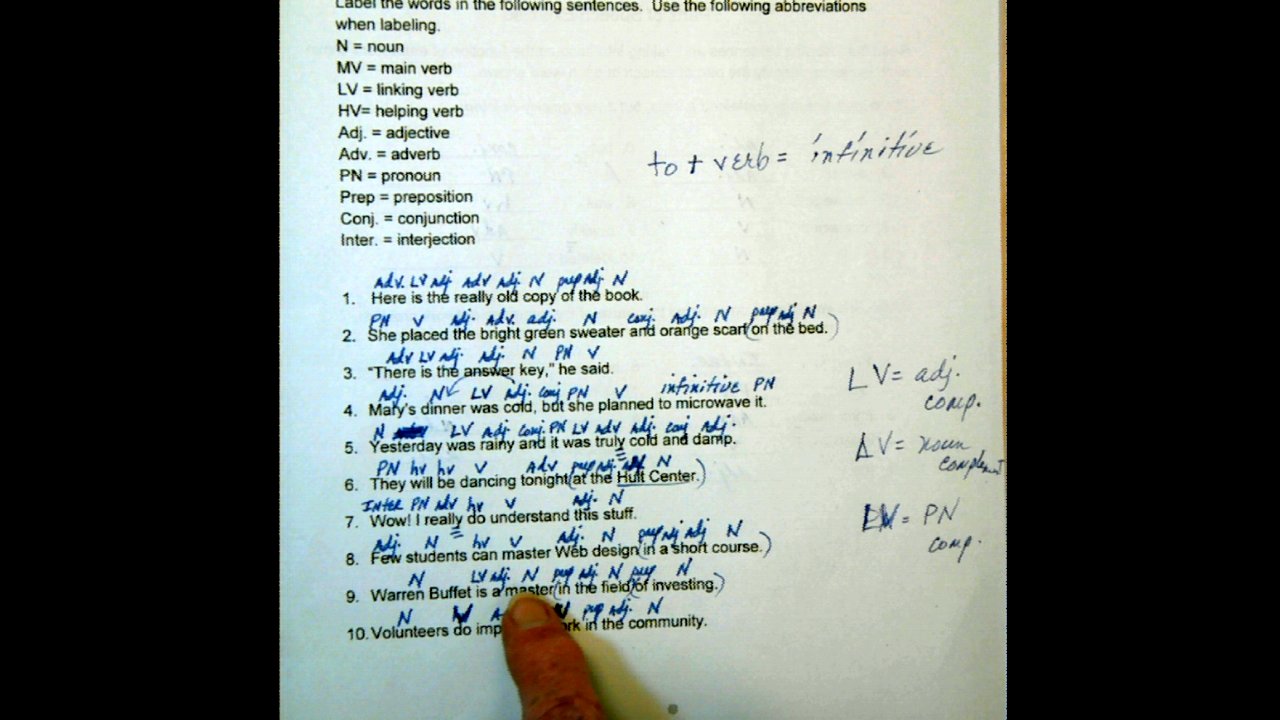 Label the words in the following sentences. Use the following abbreviations
when labeling.
N = noun
MV = main verb
LV = linking verb
HV= helping verb
Adj. = adjective
Adv. = adverb
to + verb = infinitive
PN = pronoun
Prep = preposition
Conj. = conjunction
Inter. = interjection
Adv. LV Adj Adv Adj. N prep Adj N
1. Here is the really old copy of the book.
PN V Adj. Adv. adj. N conj. Adj. N prep adj N
2. She placed the bright green sweater and orange scarf (on the bed.)
Adv LV Adj. Adj. N PN V
3. "There is the answer key," he said.
LV= adj. comp.
Adj. N LV Adj. conj PN V infinitive PN
4. Mary's dinner was cold, but she planned to microwave it.
N LV Adj conj. PN LV Adv Adj. conj Adj.
5. Yesterday was rainy and it was truly cold and damp.
LV= noun complement
PN hv hv V Adv prep adj. N
6. They will be dancing tonight (at the Hult Center.)
Inter PN adv hv V Adj. N
7. Wow! I really do understand this stuff.
LV = PN comp.
Adj. N hv V Adj. N prep Adj adj N
8. Few students can master Web design (in a short course.)
N LV adj. N prep adj N prep N
9. Warren Buffet is a master (in the field (of investing.)
N V prep Adj. N
10. Volunteers do in the community.